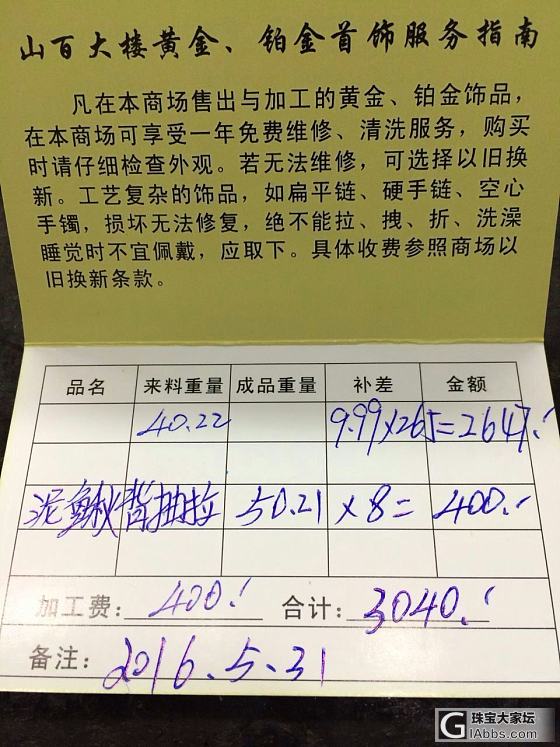 山百大楼黄金、铂金首饰服务指南
凡在本商场售出与加工的黄金、铂金饰品，
在本商场可享受一年免费维修、清洗服务，购买
时请仔细检查外观。若无法维修，可选择以旧换
新。工艺复杂的饰品，如扁平链、硬手链、空心
手镯，损坏无法修复，绝不能拉、拽、折、洗澡
睡觉时不宜佩戴，应取下。具体收费参照商场以
旧换新条款。
品名 来料重量 成品重量 补差 金额
40.22 9.99×265=2647.
泥鳅背抽拉 50.21 ×8= 400.
加工费：400. 合计：3040.
备注：2016.5.31
珠宝大家坛
IAbbs.com